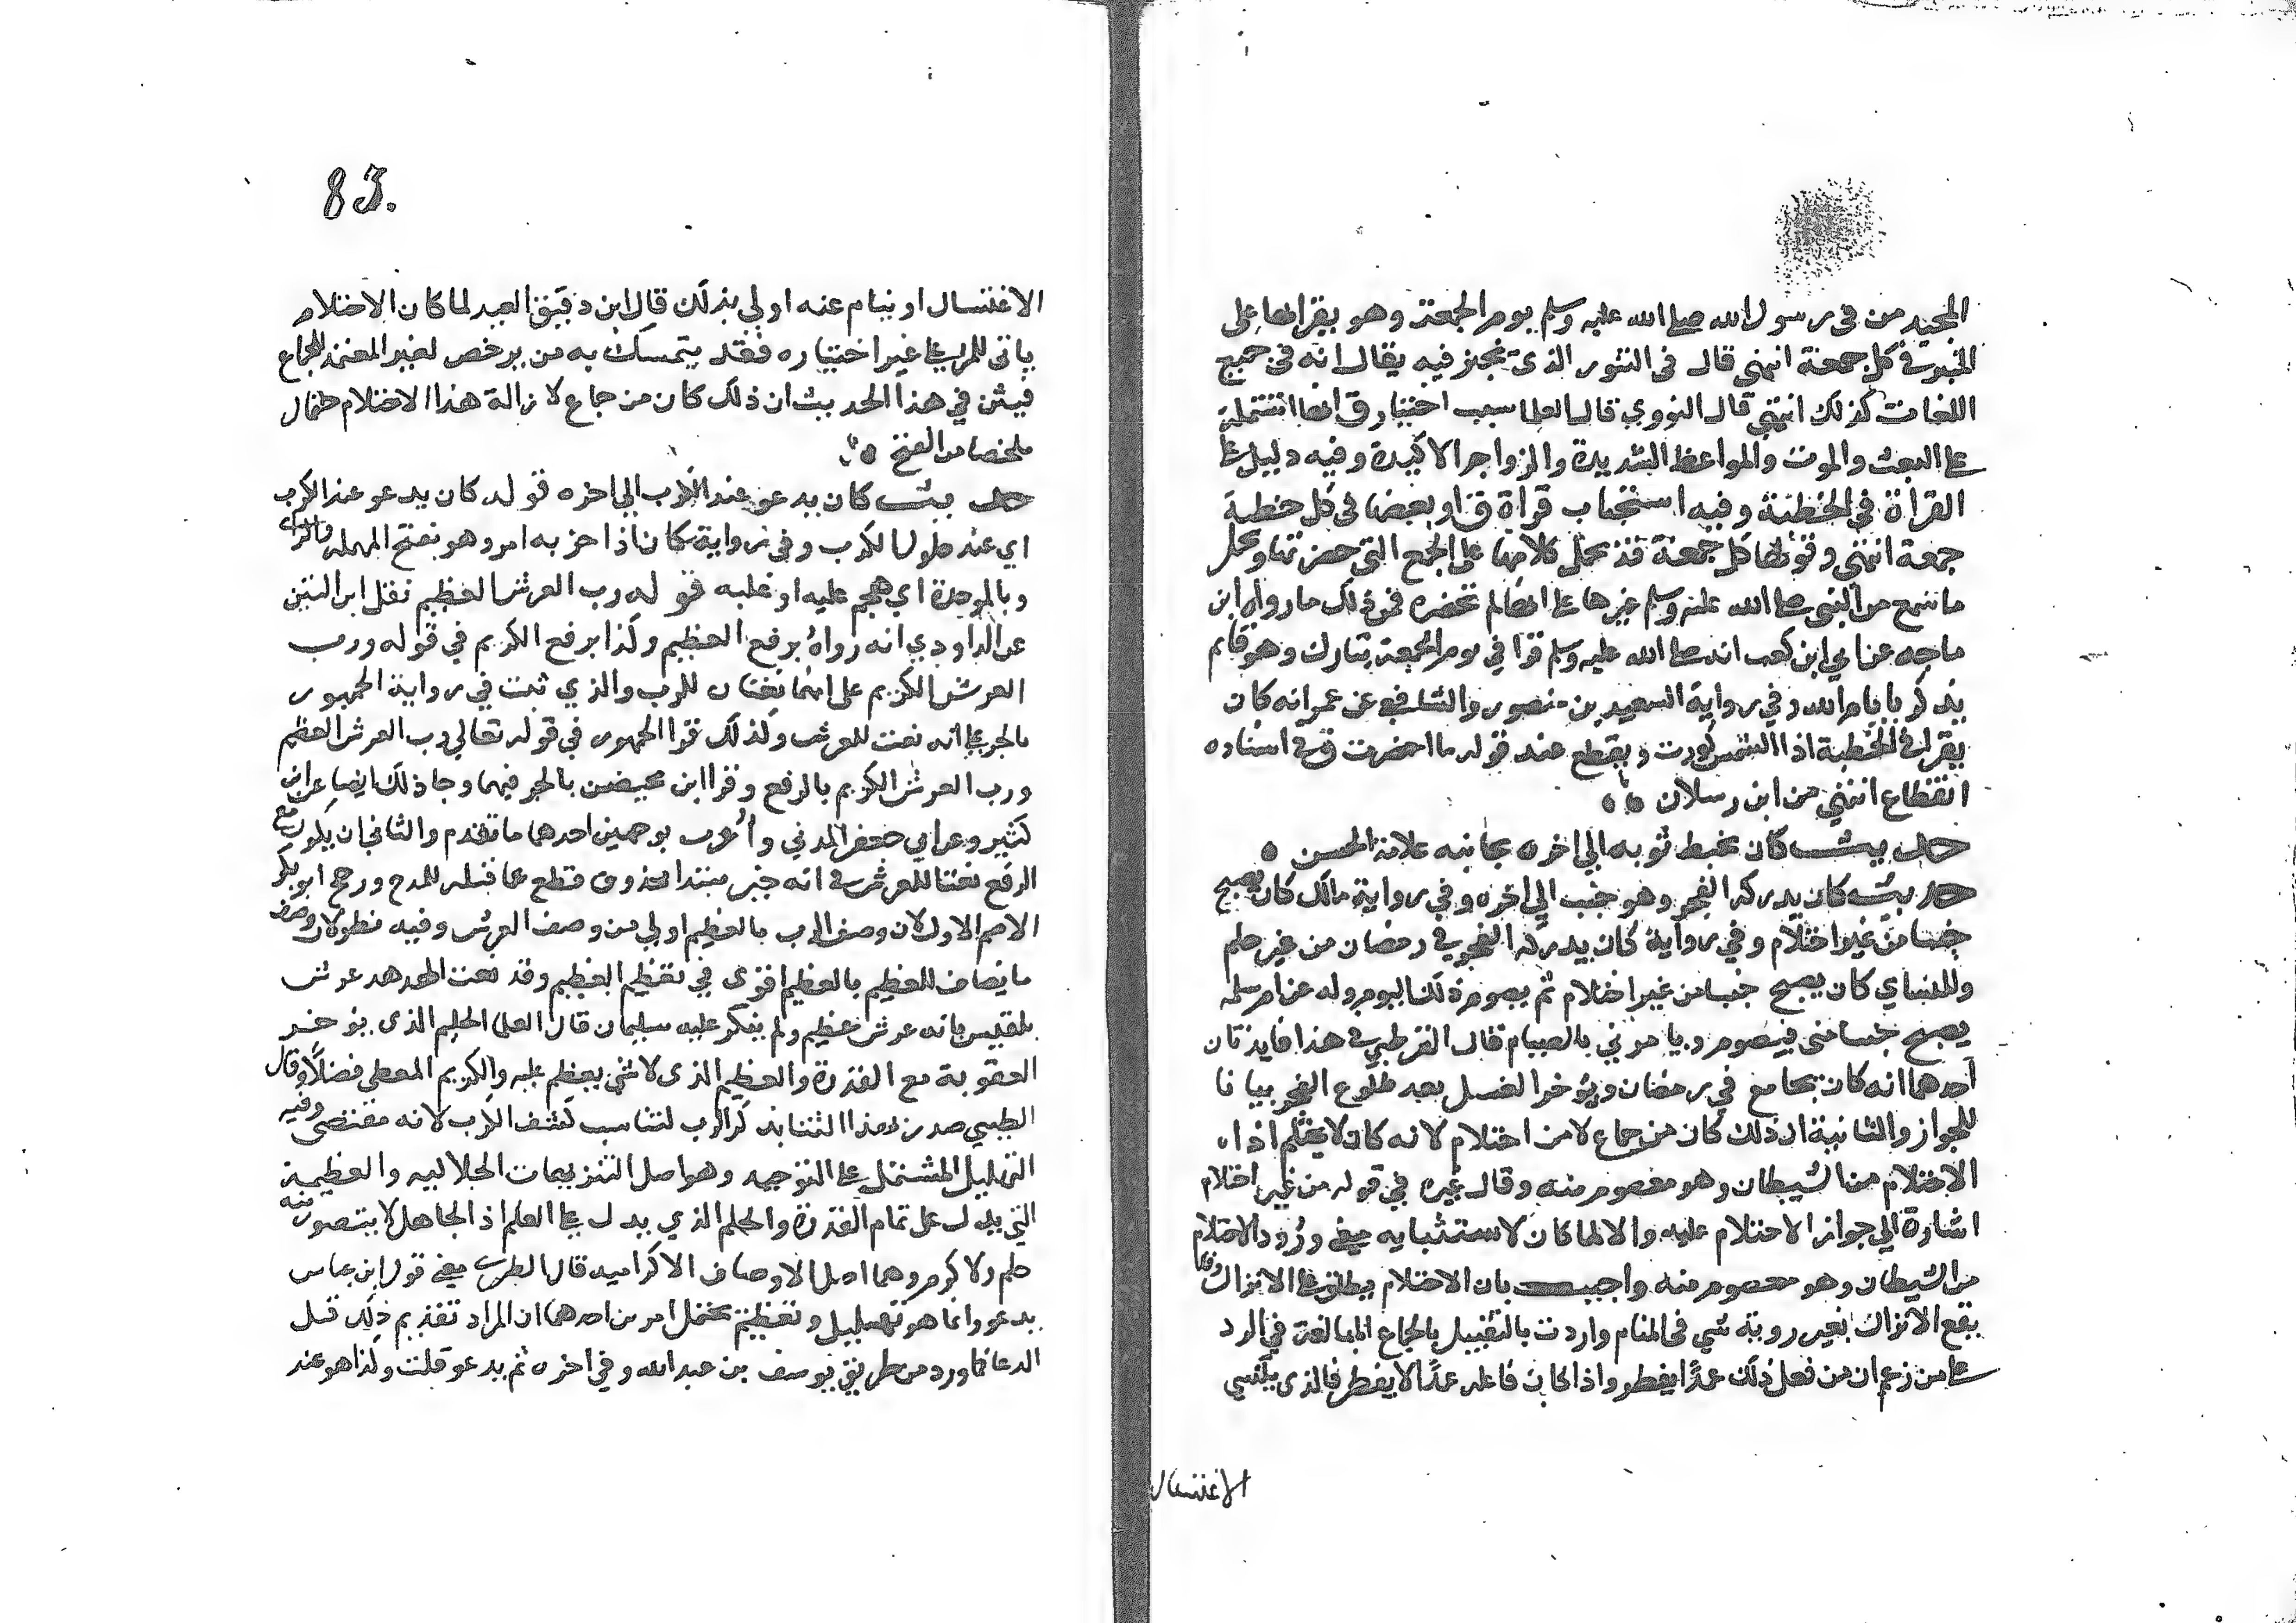 المجيد من فى رسول الله صلى الله عليه وسلم يوم الجمعة وهو يقرا بها على
المنبر فى كل جمعة انتهى قال فى التنور الذى يخبز فيه يقال انه فى جميع
اللغات كذلك انتهى قال النووي قال العلما سبب اختيار ق انها اشتملت
على البعث والموت والمواعظ الشديدة والزواجر الاكيدة وفيه دليل على
القراة في الخطبة وفيه استحباب قراة ق او بعضها فى كل خطبة
جمعة انتهى وقولها كل جمعة قد يحمل كلامها على الجمع التى حضرتها ويحمل
ما سمع من النبى صلى الله عليه وسلم غيرها على انها لم تحضره فمن ذلك ما رواه ابن
ماجه عن ابي ابن كعب انه صلى الله عليه وسلم قرا في يوم الجمعة تبارك وهو قايم
يذكر بايام الله وفي رواية السعيد بن منصور والشافعي عن عمر انه كان
يقرا فى الخطبة اذا الشمس كورت ويقطع عند قوله ما احضرت وفى اسناده
انقطاع انتهي من ابن رسلان
حديث كان يخيط ثوبه الي اخره بجانبه علامة الحسن
حديث كان يدركه الفجر وهو جنب الي اخره وفي رواية مالك كان يصبح
جنبا من غير احتلام وفي رواية كان يدركه الفجر في رمضان من غير حلم
وللنساي كان يصبح جنبا من غير احتلام ثم يصوم ذلك اليوم وله عن ام سلمه
يصبح جنبا منى فيصوم ويامرني بالصيام قال القرطبي في هذا فايدتان
احدهما انه كان يجامع في رمضان ويوخر الغسل بعد طلوع الفجر بيانا
للجواز والثانية ان ذلك كان من جماع لا من احتلام لانه كان لا يحتلم اذ
الاحتلام من الشيطان وهو معصوم منه وقال غيره في قوله من غير احتلام
اشارة الي جواز الاحتلام عليه والا لما كان لاستثنايه معنى ورد الاحتلام
من الشيطان وهو معصوم منه واجيب بان الاحتلام يطلق على الانزال وقد
يقع الانزال بغير روية شي فى المنام واردت بالتقييد بالجماع المبالغة في الرد
على من زعم ان من فعل ذلك عمدا يفطر واذا كان فاعله عمدا لا يفطر فالذى ينسي
الاغتسال
83.
الاغتسال او ينام عنه اولي بذلك قال ابن دقيق العيد لما كان الاحتلام
ياتى للمرء على غير اختياره فقد يتمسك به من يرخص لغير المتعمد الجماع
فبين في هذا الحديث ان ذلك كان من جماع لازالة هذا الاحتمال
ملخصا من الفتح
حديث كان يدعو عند الكرب الي اخره قوله كان يدعو عند الكرب
اي عند حلول الكرب وفى رواية كان اذا حزبه امر وهو بفتح المهملة والزاى
وبالموحدة اي هجم عليه او غلبه قوله رب العرش العظيم نقل ابن التين
عن الداودي انه رواه برفع العظيم وكذا برفع الكريم في قوله ورب
العرش الكريم على انهما نعتان للرب والذي ثبت في رواية الجمهور
بالجر على انه نعت للعرش وكذلك قرا الجمهور في قوله تعالي رب العرش العظيم
ورب العرش الكريم بالرفع وقرا ابن محيصن بالجر فيهما وجا ذلك ايضا عن ابن
كثير وعن ابي جعفر المدني واعرب بوجهين احدهما ما تقدم والثاني ان يكون مع
الرفع نعتا للعرش على انه خبر مبتدا محذوف قطع عما قبله للمدح ورجح ابو بكر
الاصم الاول لان وصف الرب بالعظيم اولي من وصف العرش وفيه نظر لان وصف
ما يضاف للعظيم بالعظيم اقوى في تعظيم العظيم وقد نعت الهدهد عرش
بلقيس بانه عرش عظيم ولم ينكر عليه سليمان قال العلما الحليم الذى يوخر
العقوبة مع القدرة والعظيم الذى لا شى يعظم عليه والكريم المعطي فضلا وقال
الطيبي صدر هذا الثنا بذكر الرب لتناسب كشف الكرب لانه مقتضى وفيه
التهليل المشتمل على التوحيد وهو اصل التنزيهات الجلاليه والعظمة
التي يدل على تمام القدرة والحلم الذي يدل على العلم اذ الجاهل لا يتصور منه
حلم ولا كرم وهما اصل الاوصاف الاكراميه قال الطبري معنى قول ابن عباس
يدعو وانما هو تهليل وتعظيم يحتمل امرين احدهما ان المراد تقديم ذلك قبل
الدعا كما ورد من طريق يوسف بن عبد الله وفي اخره ثم يدعو قلت وكذا هو عند